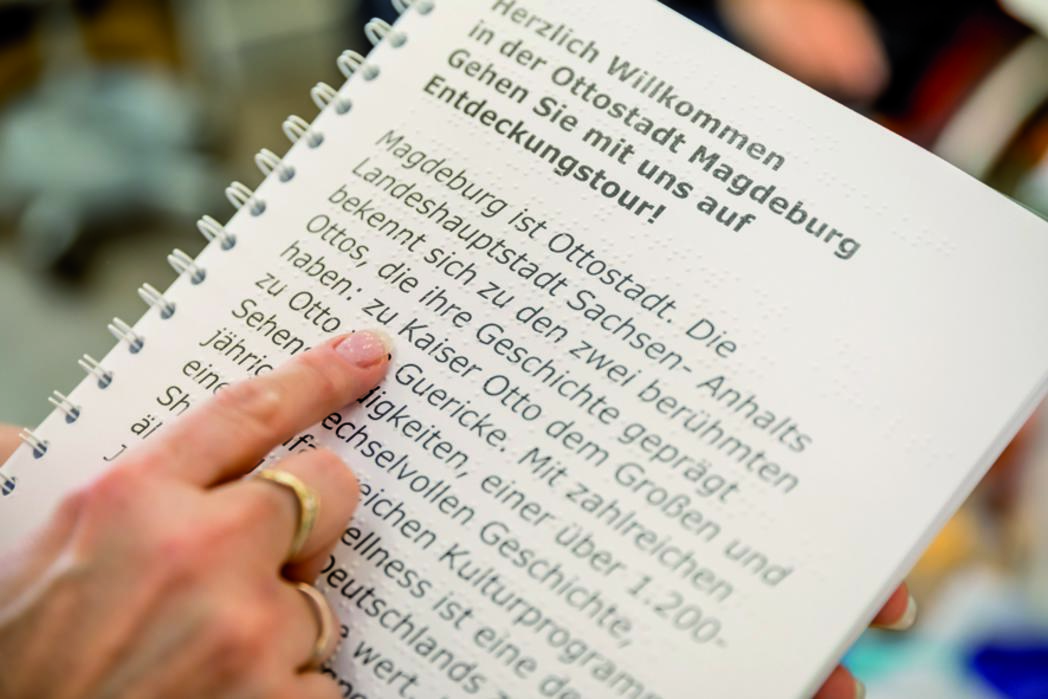 Herzlich Willkommen
in der Ottostadt Magdeburg
Gehen Sie mit uns auf
Entdeckungstour!
Magdeburg ist Ottostadt. Die
Landeshauptstadt Sachsen- Anhalts
bekennt sich zu den zwei berühmten
Ottos, die ihre Geschichte geprägt
haben: zu Kaiser Otto dem Großen und
zu Otto Guericke. Mit zahlreichen
Sehen digkeiten, einer über 1.200-
jähric echselvollen Geschichte,
eine eichen Kulturprogramm
Sh ellness ist eine de
äl Deutschlands
J wert.